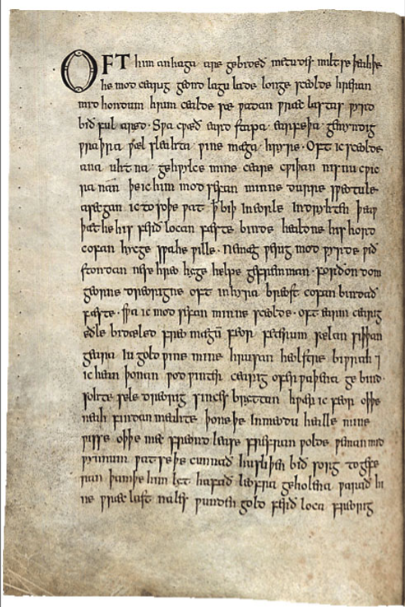 OFT him anhaga are gebideð metudes miltse þeahþe
he modcearig geond lagu lade longe sceolde hreran
mid hondum hrim cealde sæ ƿadan ƿræc lastas ƿyrd
bið ful aræd. Sƿa cƿæð eard stapa earfeþa gemyndig
ƿraþra ƿæl sleahta ƿine mæga hryre. Oft ic sceolde
ana uhtna gehƿylce mine ceare cƿiþan nis nu cƿic
ra nan þe ic him mod sefan minne durre sƿeotule
asecgan ic to soþe ƿat ꝥ biþ in eorle indryhten þeaƿ
þæt he his ferð locan fæste binde healdne his hord
cofan hycge sƿa he ƿille. Ne mæg ƿerig mod ƿyrde ƿið
stondan ne se hreo hyge helpe gefremman. forðon dom
georne dreorigne oft in hyra breost cofan bindað
fæste. sƿa ic mod sefan minne sceolde. oft earm cearig
eðle bidæled freo magū feor feterum sælan siþþan
geara iu gold ƿine mine hrusan heolstre biƿrah ⁊
ic hean þonan ƿod ƿinter cearig ofer ƿaþena gebind
sohte sele dreorig sinces bryttan hƿær ic feor oþþe
neah findan meahte þone þe in meodu healle mine
ƿisse oþþe mec freond lease frefran ƿolde ƿeman mid
ƿynnum ƿat se þe cunnað hu sliþen bið sorg to gefe
ran þam þe him lyt hafað leofra geholena ƿarað hi
ne ƿræc last nales ƿunden gold ferð loca freorig